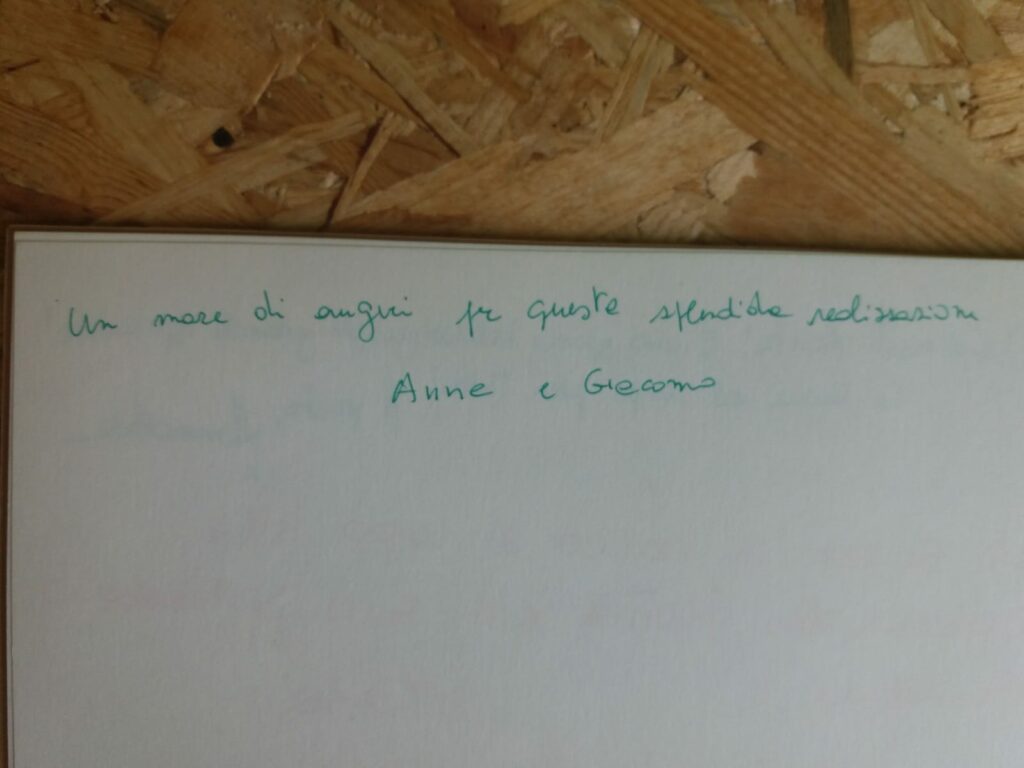 Un mare di auguri per questa splendida realizzazione
Anna e Giacomo